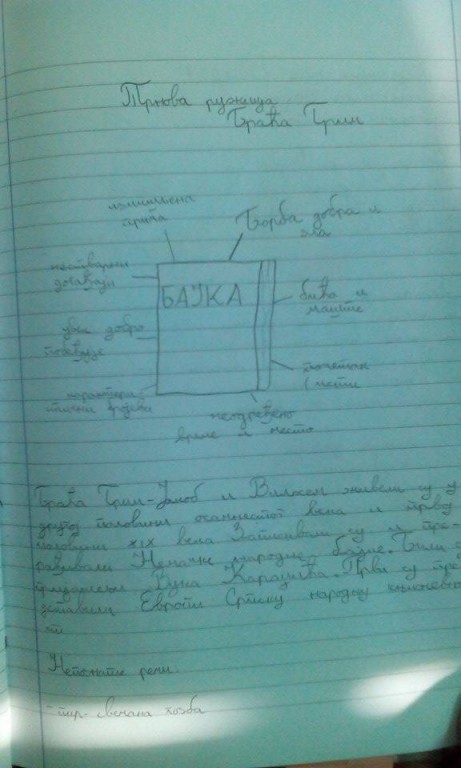 Трнова ружица
Браћа Грим
измишљена
прича
Борба добра и
зла
нестварни
догађаји
БАЈКА
бића и
маште
увек добро
побеђује
почетак
карактери-
стични бројеви
неодређено
време и место
Браћа Грим-Јакоб и Вилхелм живели су у
другој половини осамнаестог века и првој
половини XIX века Записивали су и пре-
рађивали Немачке народне бајке. Били су
пријатељи Вука Караџића. Први су пре
дставили Европи Српску народну књижевно
ст
Непознате речи:
-пир- свечана гозба